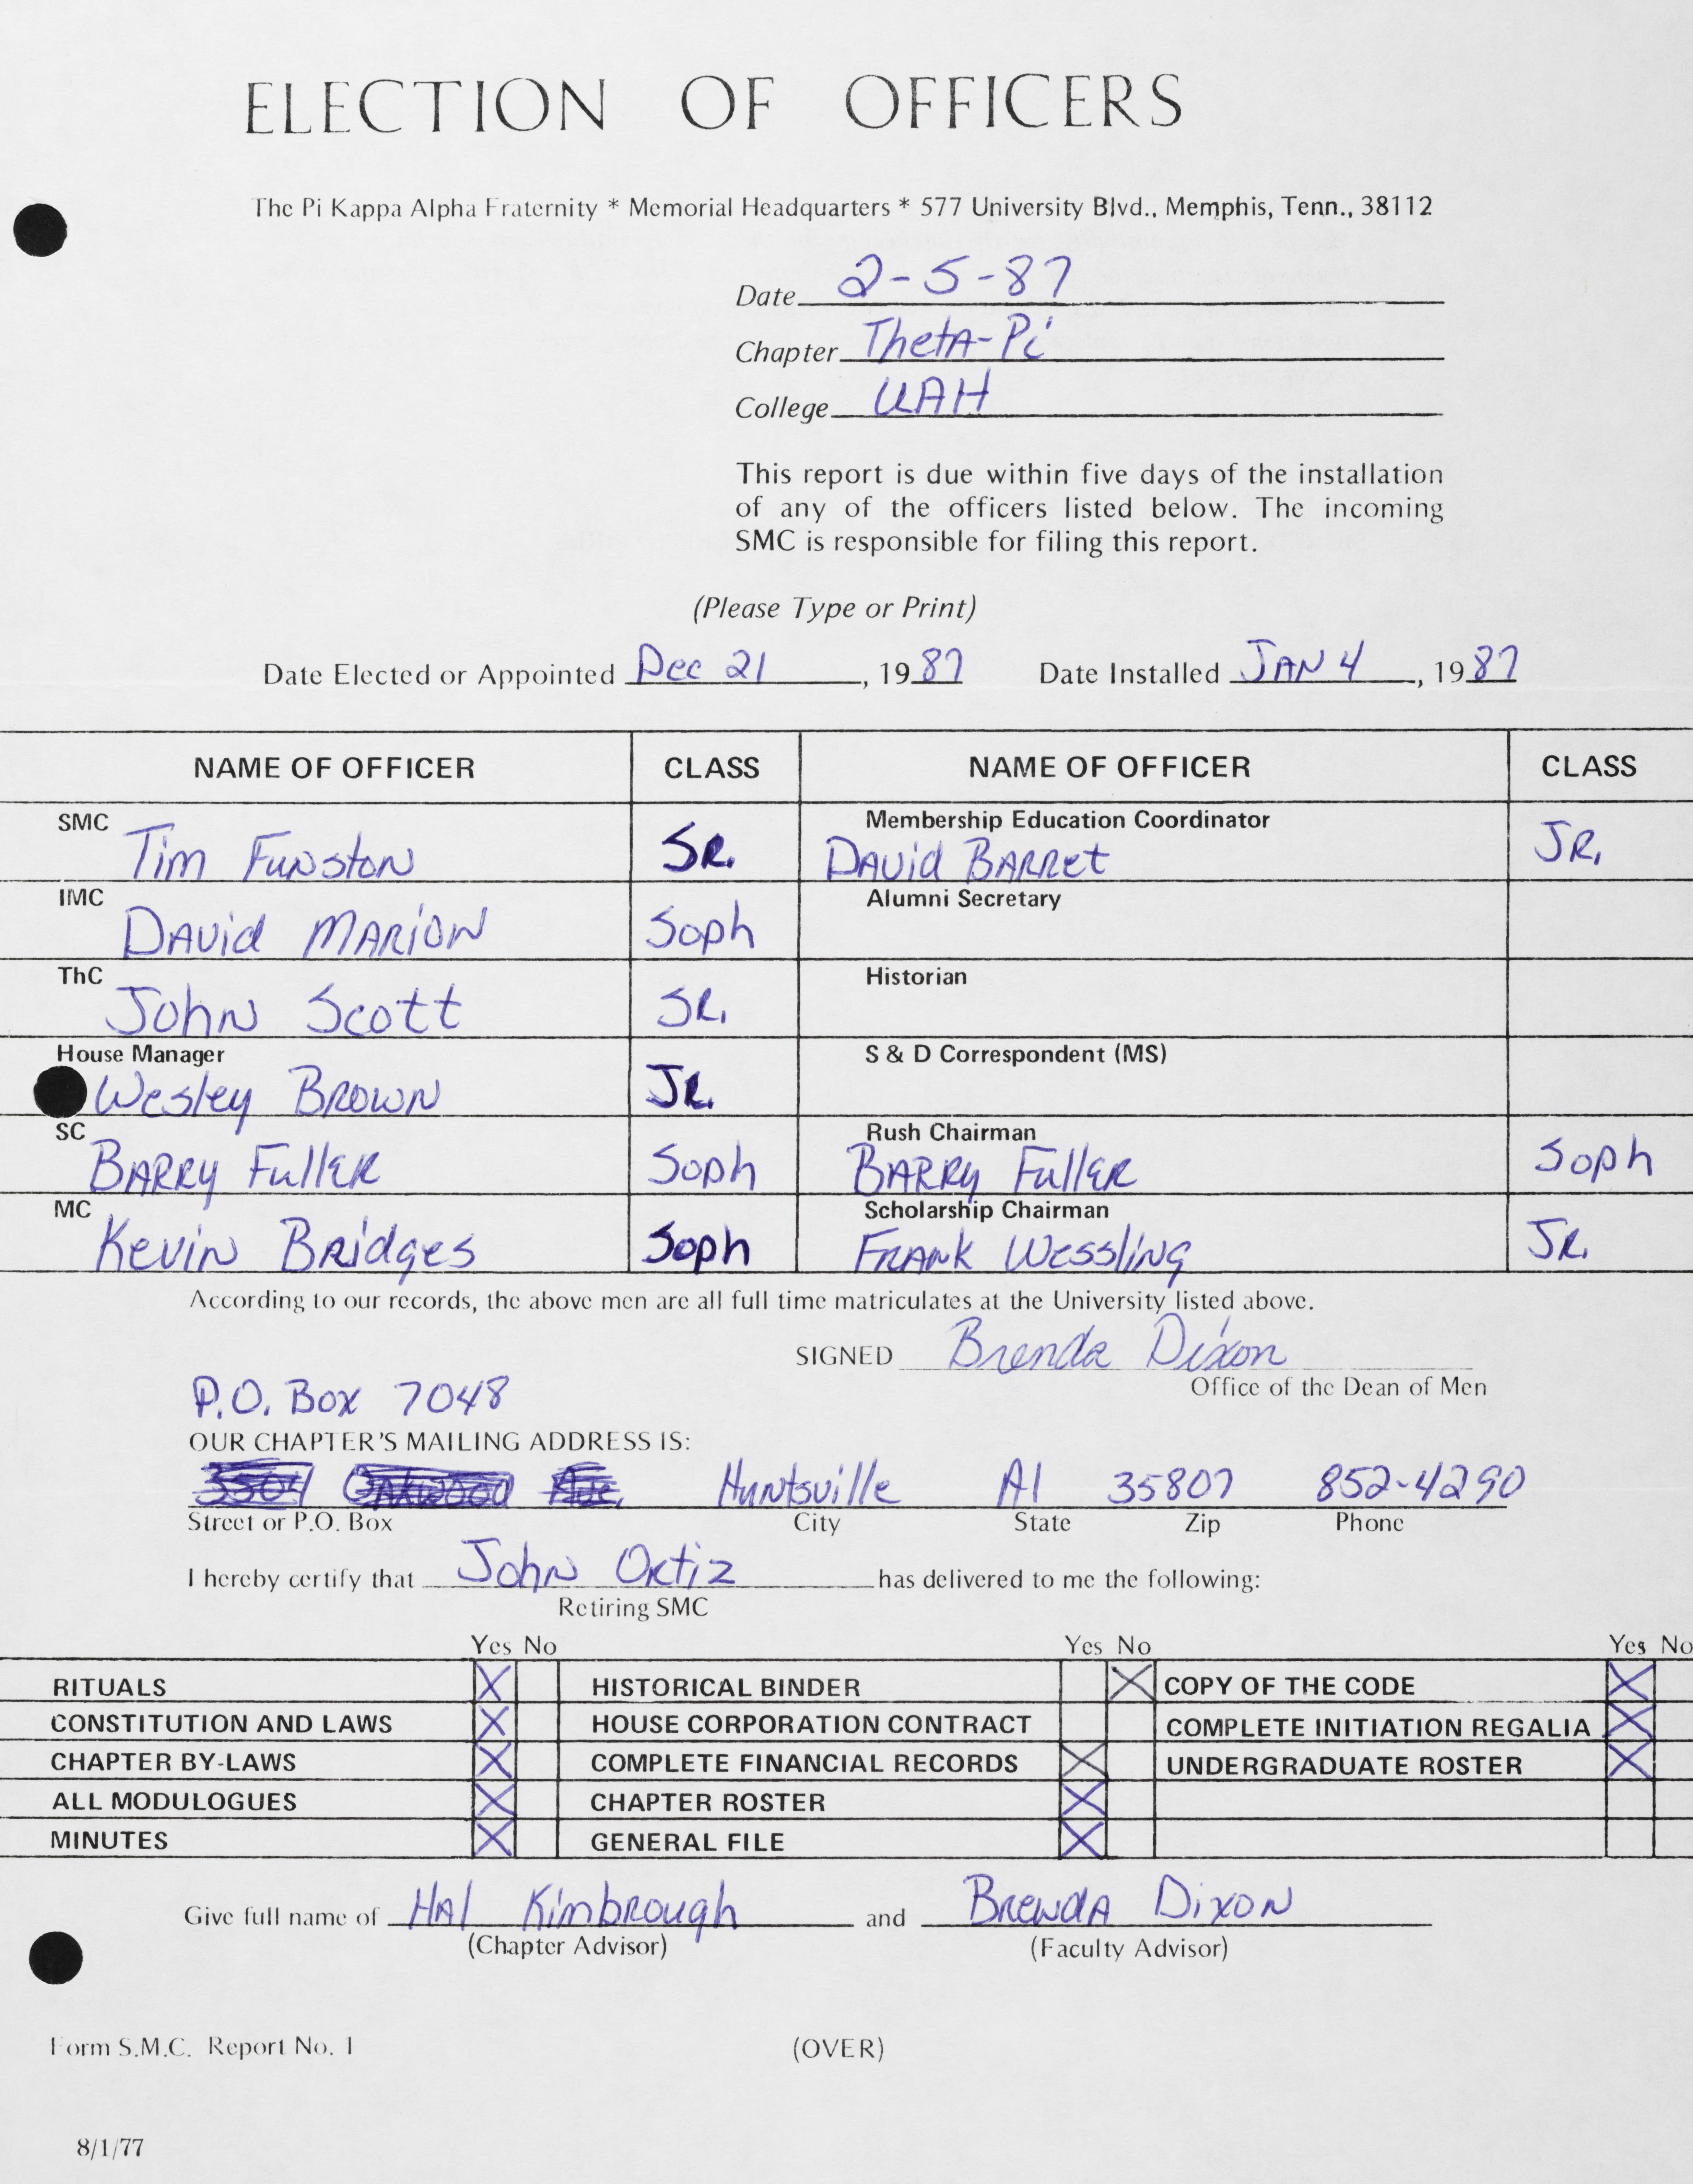 ELECTION OF OFFICERS
The Pi Kappa Alpha Fraternity * Memorial Headquarters * 577 University Blvd., Memphis, Tenn., 38112
Date 2-5-87
Chapter Theta-Pi
College UAH
This report is due within five days of the installation
of any of the officers listed below. The incoming
SMC is responsible for filing this report.
(Please Type or Print)
Date Elected or Appointed Dec 21, 1987 Date Installed JAN 4, 1987
NAME OF OFFICER CLASS NAME OF OFFICER CLASS
SMC Membership Education Coordinator
Tim Funston SR. David Barret JR.
IMC Alumni Secretary
David Marion Soph
ThC Historian
John Scott SR.
House Manager S & D Correspondent (MS)
Wesley Brown JR.
SC Rush Chairman
Barry Fuller Soph Barry Fuller Soph
MC Scholarship Chairman
Kevin Bridges Soph Frank Wessling JR.
According to our records, the above men are all full time matriculates at the University listed above.
SIGNED Brenda Dixon
Office of the Dean of Men
P.O. Box 7048
OUR CHAPTER'S MAILING ADDRESS IS:
3504 Oakwood Ave, Huntsville Al 35807 852-4290
Street or P.O. Box City State Zip Phone
I hereby certify that John Ortiz has delivered to me the following:
Retiring SMC
Yes No Yes No Yes No
RITUALS X HISTORICAL BINDER X COPY OF THE CODE X
CONSTITUTION AND LAWS X HOUSE CORPORATION CONTRACT COMPLETE INITIATION REGALIA X
CHAPTER BY-LAWS X COMPLETE FINANCIAL RECORDS X UNDERGRADUATE ROSTER X
ALL MODULOGUES X CHAPTER ROSTER X
MINUTES X GENERAL FILE X
Give full name of Hal Kimbrough and Brenda Dixon
(Chapter Advisor) (Faculty Advisor)
Form S.M.C. Report No. 1 (OVER)
8/1/77